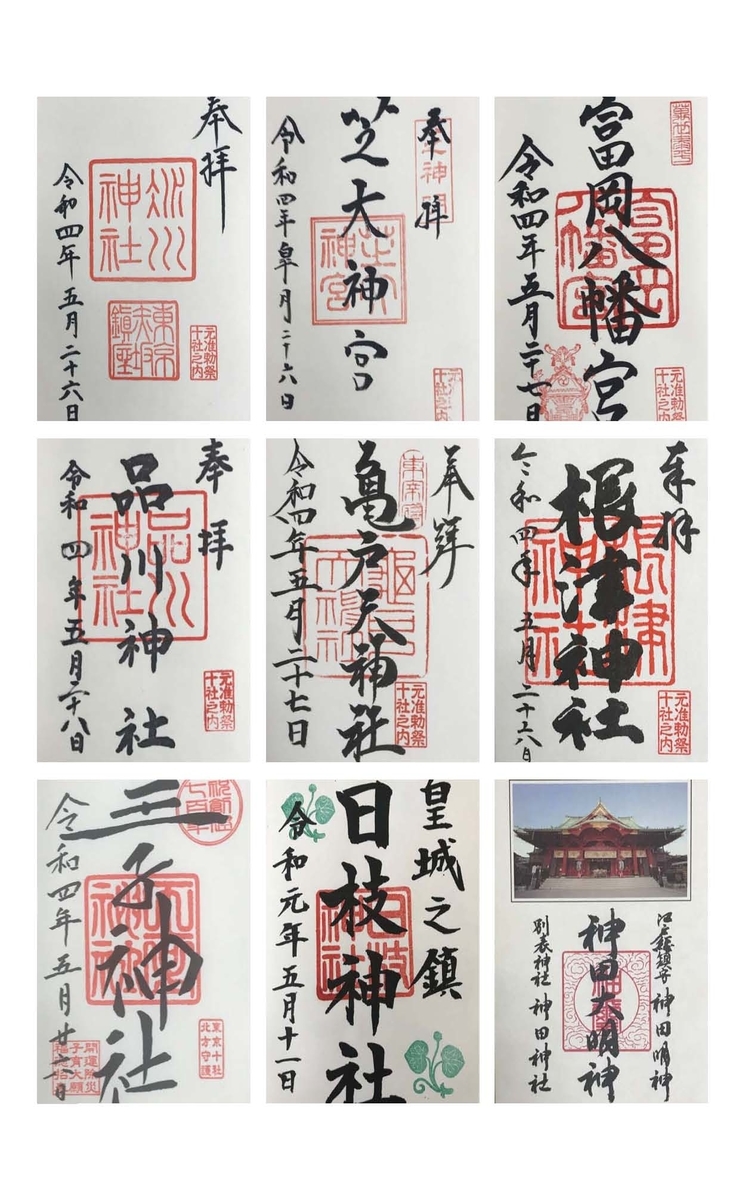 奉拝
氷川神社
東京赤坂鎮座
元准勅祭十社之内
令和四年五月二十六日
奉拝
芝大神宮
芝大神宮
令和四年皐月二十六日
富岡八幡宮
富岡八幡宮
元准勅祭十社之内
令和四年五月二十七日
奉拝
品川神社
品川神社
元准勅祭十社之内
令和四年五月二十八日
奉拝
東宰府
亀戸天神社
元准勅祭十社之内
令和四年五月二十七日
奉拝
根津神社
根津神社
元准勅祭十社之内
令和四年五月二十六日
王子神社
東京十社北方守護
開運除災
子育大願
令和四年五月廿六日
皇城之鎮
日枝神社
日枝神社
令和元年五月十一日
江戸総鎮守 神田明神
神田大明神
別表神社 神田神社